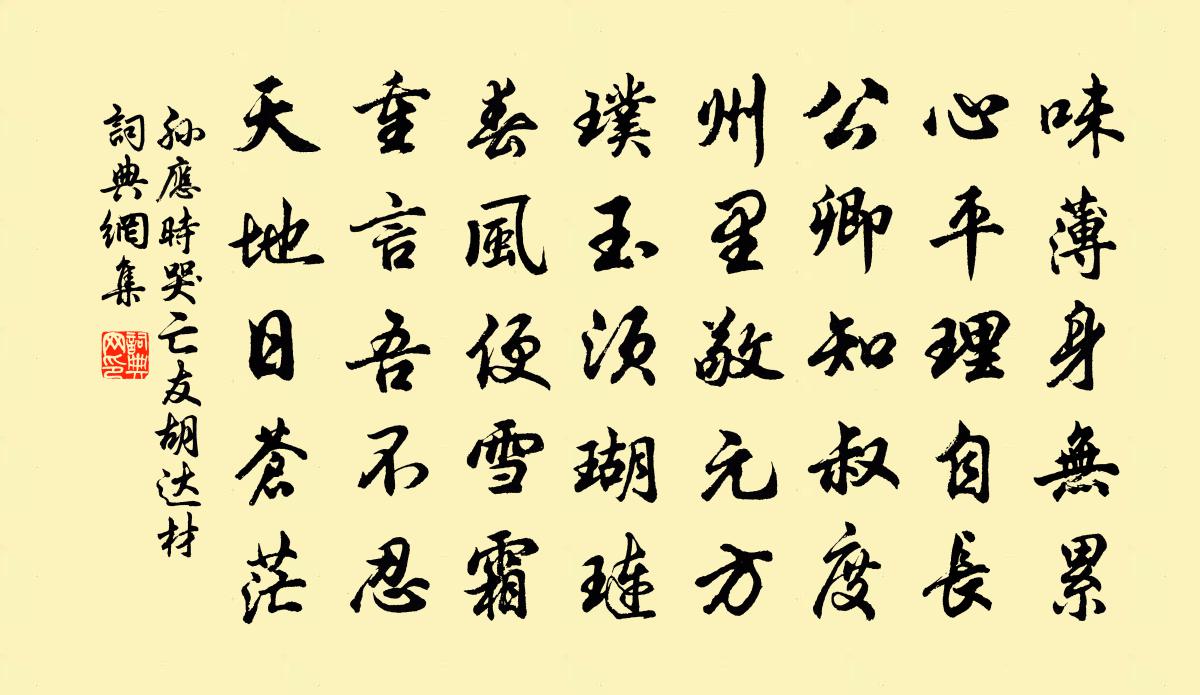 味薄身無累
心平理自長
公卿知叔度
州里敬元方
璞玉須瑚璉
春風便雪霜
重言吾不忍
天地日蒼茫
孫應時哭亡友胡达材
詞典網集
詞典
网印